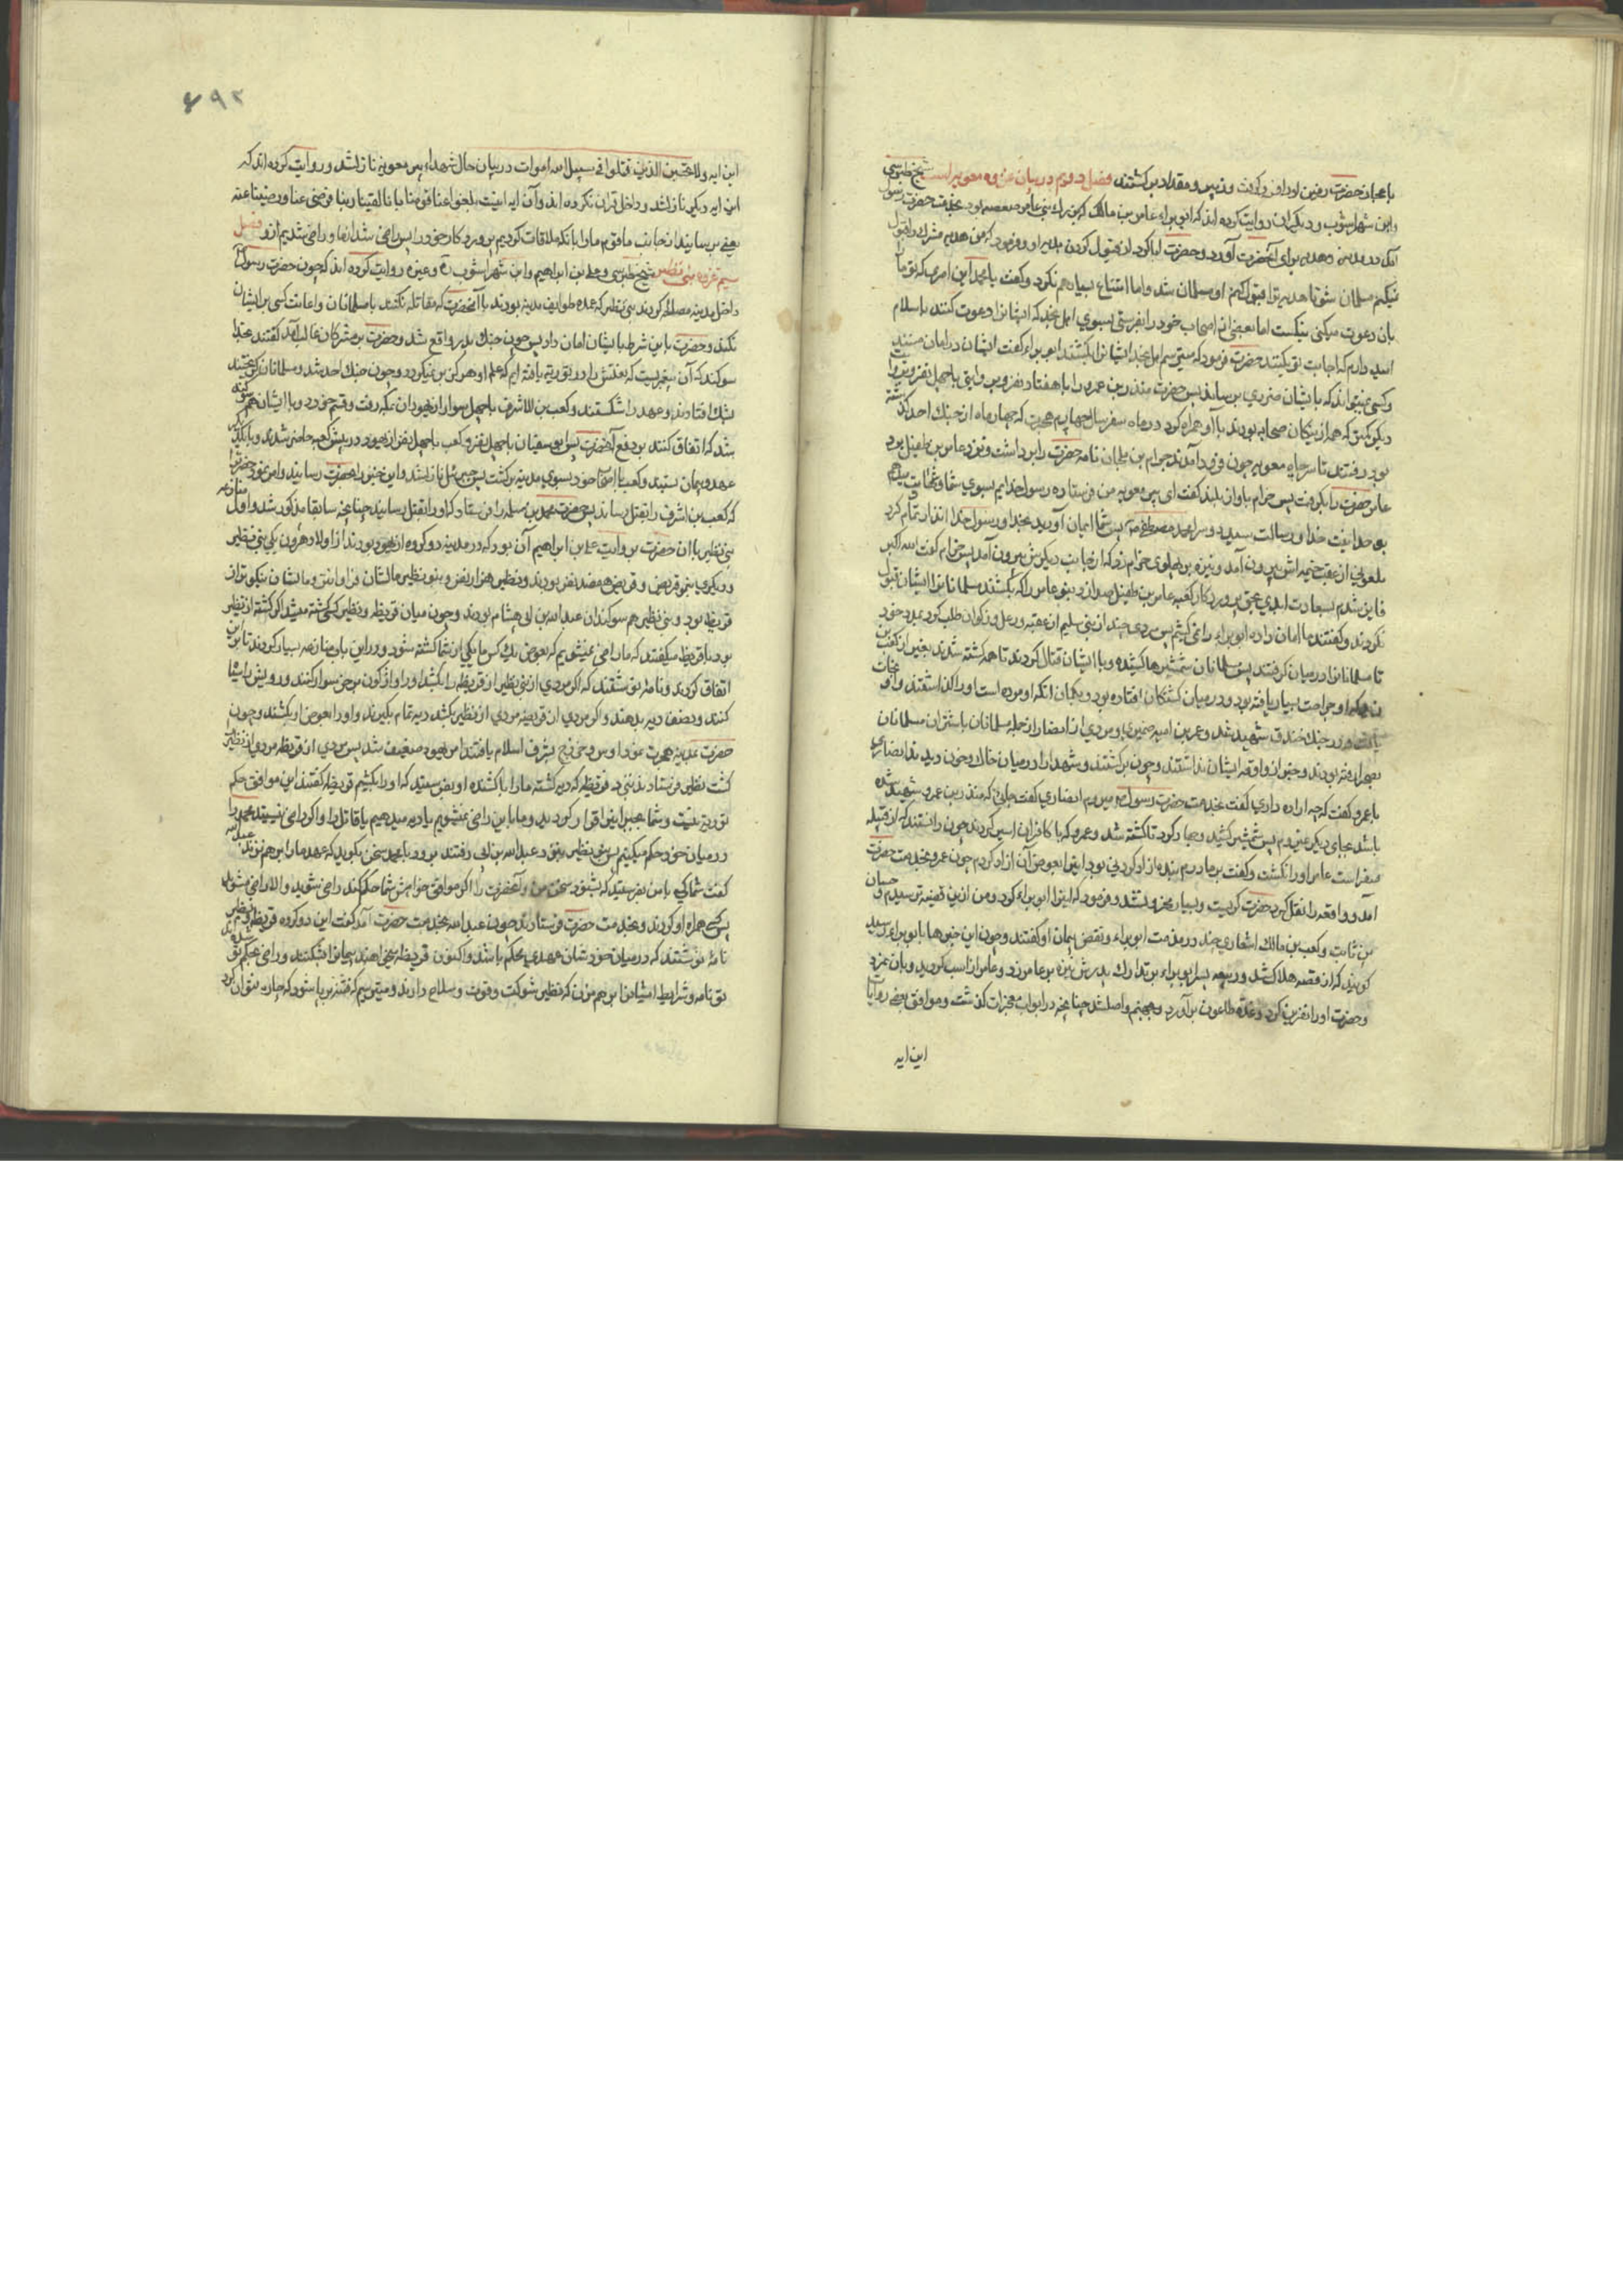 باعجاز حضرت رفیق او را فرو گرفت و زبیر و مقداد برگشتند فصل دویم در بیان غزوه معونه است شیخ طبرسی
و ابن شهر اشوب و دیگران روایت کرده اند که ابو براء عامر بن مالک که بزرک بنی عامر صعصعه بود بخدمت حضرت رسول
آمد در مدینه و هدیه برای آنحضرت آورد و حضرت ابا کرد از قبول کردن هدیه او و فرمود که من هدیه مشرک را قبول
نمیکنم مسلمان شو تا هدیه ترا قبول کنم او مسلمان نشد و اما امتناع بسیار هم نکرد و گفت یا محمد این امری که تو ما را
بان دعوت میکنی نیکست اما بعضی از اصحاب خود را بفرستی بسوی اهل نجد که ایشانرا دعوت کنند باسلام
امید دارم که اجابت تو بکنند حضرت فرمود که میترسم اهل نجد ایشانرا بکشند ابو براء گفت ایشان در امان منند
و کسی نمیتواند که بایشان ضرری برساند پس حضرت منذر بن عمرو را با هفتاد نفر و بروایتی با چهل نفر
دیگر که همه از نیکان صحابه بودند با او همراه کرد در ماه سفر سال چهارم هجرت که چهار ماه از جنک احد گذشته
بود رفتند تا سر چاه معونه چون فرود آمدند حرام بن ملحان نامه حضرت را برداشت و نزد عامر بن طفیل برد
عامر حضرت را نگرفت پس حرام باواز بلند گفت ای اهل بئر معونه من فرستاده رسول خدایم بسوی شما
بوحدانیت خدا و رسالت سید و سرا محمد مصطفی ص پس شما ایمان آورید بخدا و رسول خدا انذار تمام کرد
ملعونی از عقب خیمه اش بیرون آمد و نیزه بر پهلوی حرام زد که از جانب دیگرش بیرون آمد پس حرام گفت الله اکبر
فایز شدم بسعادت ابدی بحق پروردگار کعبه عامر بن طفیل صدا زد بنو عامر را که بکشند مسلمانانرا ایشان قبول
نکردند و گفتند ما امان داده ابو براء را نمی شکنیم پس مردی چند از بنی سلیم از عصیه و رعل و ذکوان طلب کرد بمدد خود
تا مسلمانانرا در میان گرفتند پس مسلمانان شمشیرها کشیده و با ایشان قتال کردند تا همه کشته شدند بغیر از کعب بن
زید که او جراحت بسیار یافته بود و در میان کشتگان افتاده بود و بگمان آنکه او مرده است او را گذاشتند و او نجات
یافت و در جنک خندق شهید شد و عمرو بن امیه ضمیری و مردی از انصار از جمله مسلمانان با شتران مسلمانان
بصحرا رفته بودند و خبر از واقعه ایشان نداشتند و چون برگشتند و شهدا را در میان خاک و خون دیدند انصاری
با عمرو گفت که چه اراده داری گفت بخدمت حضرت رسول ص میروم انصاری گفت جائی که منذر بن عمرو شهید شده
باشد بجای دیگر نمیروم پس شمشیر کشید و جهاد کرد تا کشته شد و عمرو که با کافران اسیر کردند چون دانستند که از قبیله
مضر است عامر او را نکشت و گفت بر مادرم بنده آزاد کردنی بود این را بعوض آن آزاد کردم چون عمرو بخدمت حضرت
آمد و واقعه را نقل کرد حضرت گریست و بسیار محزون شد و فرمود که اینرا ابو براء کرد و من ازین قضیه ترسیدم و حسان
بن ثابت و کعب بن مالک اشعاری چند در مذمت ابو براء و نقض پیمان او گفتند و چون این خبرها بابو براء رسید
گویند که از غصه هلاک شد و ربیعه پسر ابو براء بتدارک پدرش نیزه بر عامر زد و عامر از اسب گردید و بان نمرد
و حضرت او را نفرین کرد و غده طاعون برآورد و بجهنم واصل شد چنانچه در ابواب معجزات گذشت و موافق بعضی روایات
این ایه
۶۹۲
این ایه ولا تحسبن الذین قتلوا فی سبیل الله اموات در بیان حال شهداء بیر معونه نازل شد و روایت کرده اند که
این ایه دیگر نازل شد و داخل قران نکرده اند و آن ایه اینست بلغوا عنا قومنا بانا لقینا ربنا فرضی عنا و رضینا عنه
یعنی برسانید از جانب ما قوم ما را بانکه ملاقات کردیم پروردکار خود را پس راضی شد از ما و راضی شدیم ازو فصل
سیم غزوه بنی نضیر شیخ طبرسی و علی بن ابراهیم و ابن شهر اشوب ره و غیره روایت کرده اند که چون حضرت رسول
داخل مدینه مصالحه کردند بنی نظیر که عمده طوایف مدینه بودند با آنحضرت که مقاتله نکنند با مسلمانان و اعانت کسی بر ایشان
نکنند و حضرت باین شرط بایشان امان داد پس چون جنک بدر واقع شد و حضرت بر مشرکان غالب آمد گفتند بخدا
سوکند که آن پیغمبریست که نعتش را در توریة یافته ایم که علم او هرگز بر نمیگردد و چون جنک احد شد و مسلمانان گریختند
بشک افتادند و عهد را شکستند و کعب بن الاشرف با چهل سوار از یهودان بمکه رفت و قسم خورد و با ایشان هم سوکند
شد که اتفاق کنند بر دفع آنحضرت پس ابو سفیان با چهل نفر و کعب با چهل نفر از یهود در پیش کعبه حاضر شدند و با یکدیگر
عهد و پیمان بستند و کعب با اصحاب خود بسوی مدینه برگشت پس جبرئیل نازل شد و این خبر را بحضرت رسانید و امر نمود حضرت را
که کعب بن اشرف را بقتل رساند پس حضرت محمد بن مسلمه را فرستاد که او را بقتل رسانید چنانچه سابقا مذکور شد و اول منازعه
بنی نظیر با ان حضرت بروایت علی بن ابراهیم آن بود که در مدینه دو کروه از یهود بودند از اولاد هرون یکی بنی نظیر
و دیگری بنو قریضه و قریضه هفتصد نفر بودند و نظیر هزار نفر و بنو نظیر مالشان فراوانتر و حالشان نیکوتر از
قریظه بود و بنی نظیر هم سوکندان عبد الله بن ابی بودند و چون میان قریظه و نظیر کسی کشته میشد اگر کشته از نظیر
بود با قریظه میگفتند که ما راضی نمیشویم که بعوض یک کس ما یکی از شما کشته شود و در این باب منازعه بسیار کردند تا این
اتفاق کردند و نامه نوشتند که اگر مردی از بنی نظیر از قریظه را بکشد او را واژکون بر خر سوار کنند و رویش را سیاه
کنند و نصف دیه بدهند و اگر مردی از قریضه مردی از نظیر بکشد دیه تمام بگیرند و او را بعوض او بکشند و چون
حضرت بمدینه هجرت نمود اوس و خزرج بشرف اسلام یافتند امر یهود ضعیف شد پس مردی از قریظه مردی از نظیر
کشت نظیر فرستادند نزد قریظه که دیه کشته ما را با کشنده او بفرستید که او را بکشیم قریظه گفتند این موافق حکم
توریة نیست و شما بجبر اینرا قرار کردید و ما باین راضی نمیشویم یا دیه میدهیم یا قاتل را و اگر راضی نیستید محمد را
در میان خود حکم میکنیم پس بنی نظیر بنزد عبد الله بن ابی رفتند برو و با محمد سخن بگوید که عهد ما را بر هم نزند عبد الله
گفت شما کسی با من بفرستید که بشنود سخن من و آنحضرت را اگر موافق خواهش شما حکم کند راضی شوید و الا راضی مشوید
پس کسی همراه او کردند و بخدمت حضرت فرستادند چون عبد الله بخدمت حضرت آمد گفت این دو کروه قریظه و نظیر
نامه نوشتند که در میان خودشان عهدی محکم باشد و اکنون قریظه میخواهند پیمانرا بشکنند و راضی بحکم تو شده اند
تو نامه و شرایط ایشانرا بر هم مزن که نظیر شوکت و قوت و سلاح دارند و میترسم که فتنه برپا شود که چاره نتوان کرد